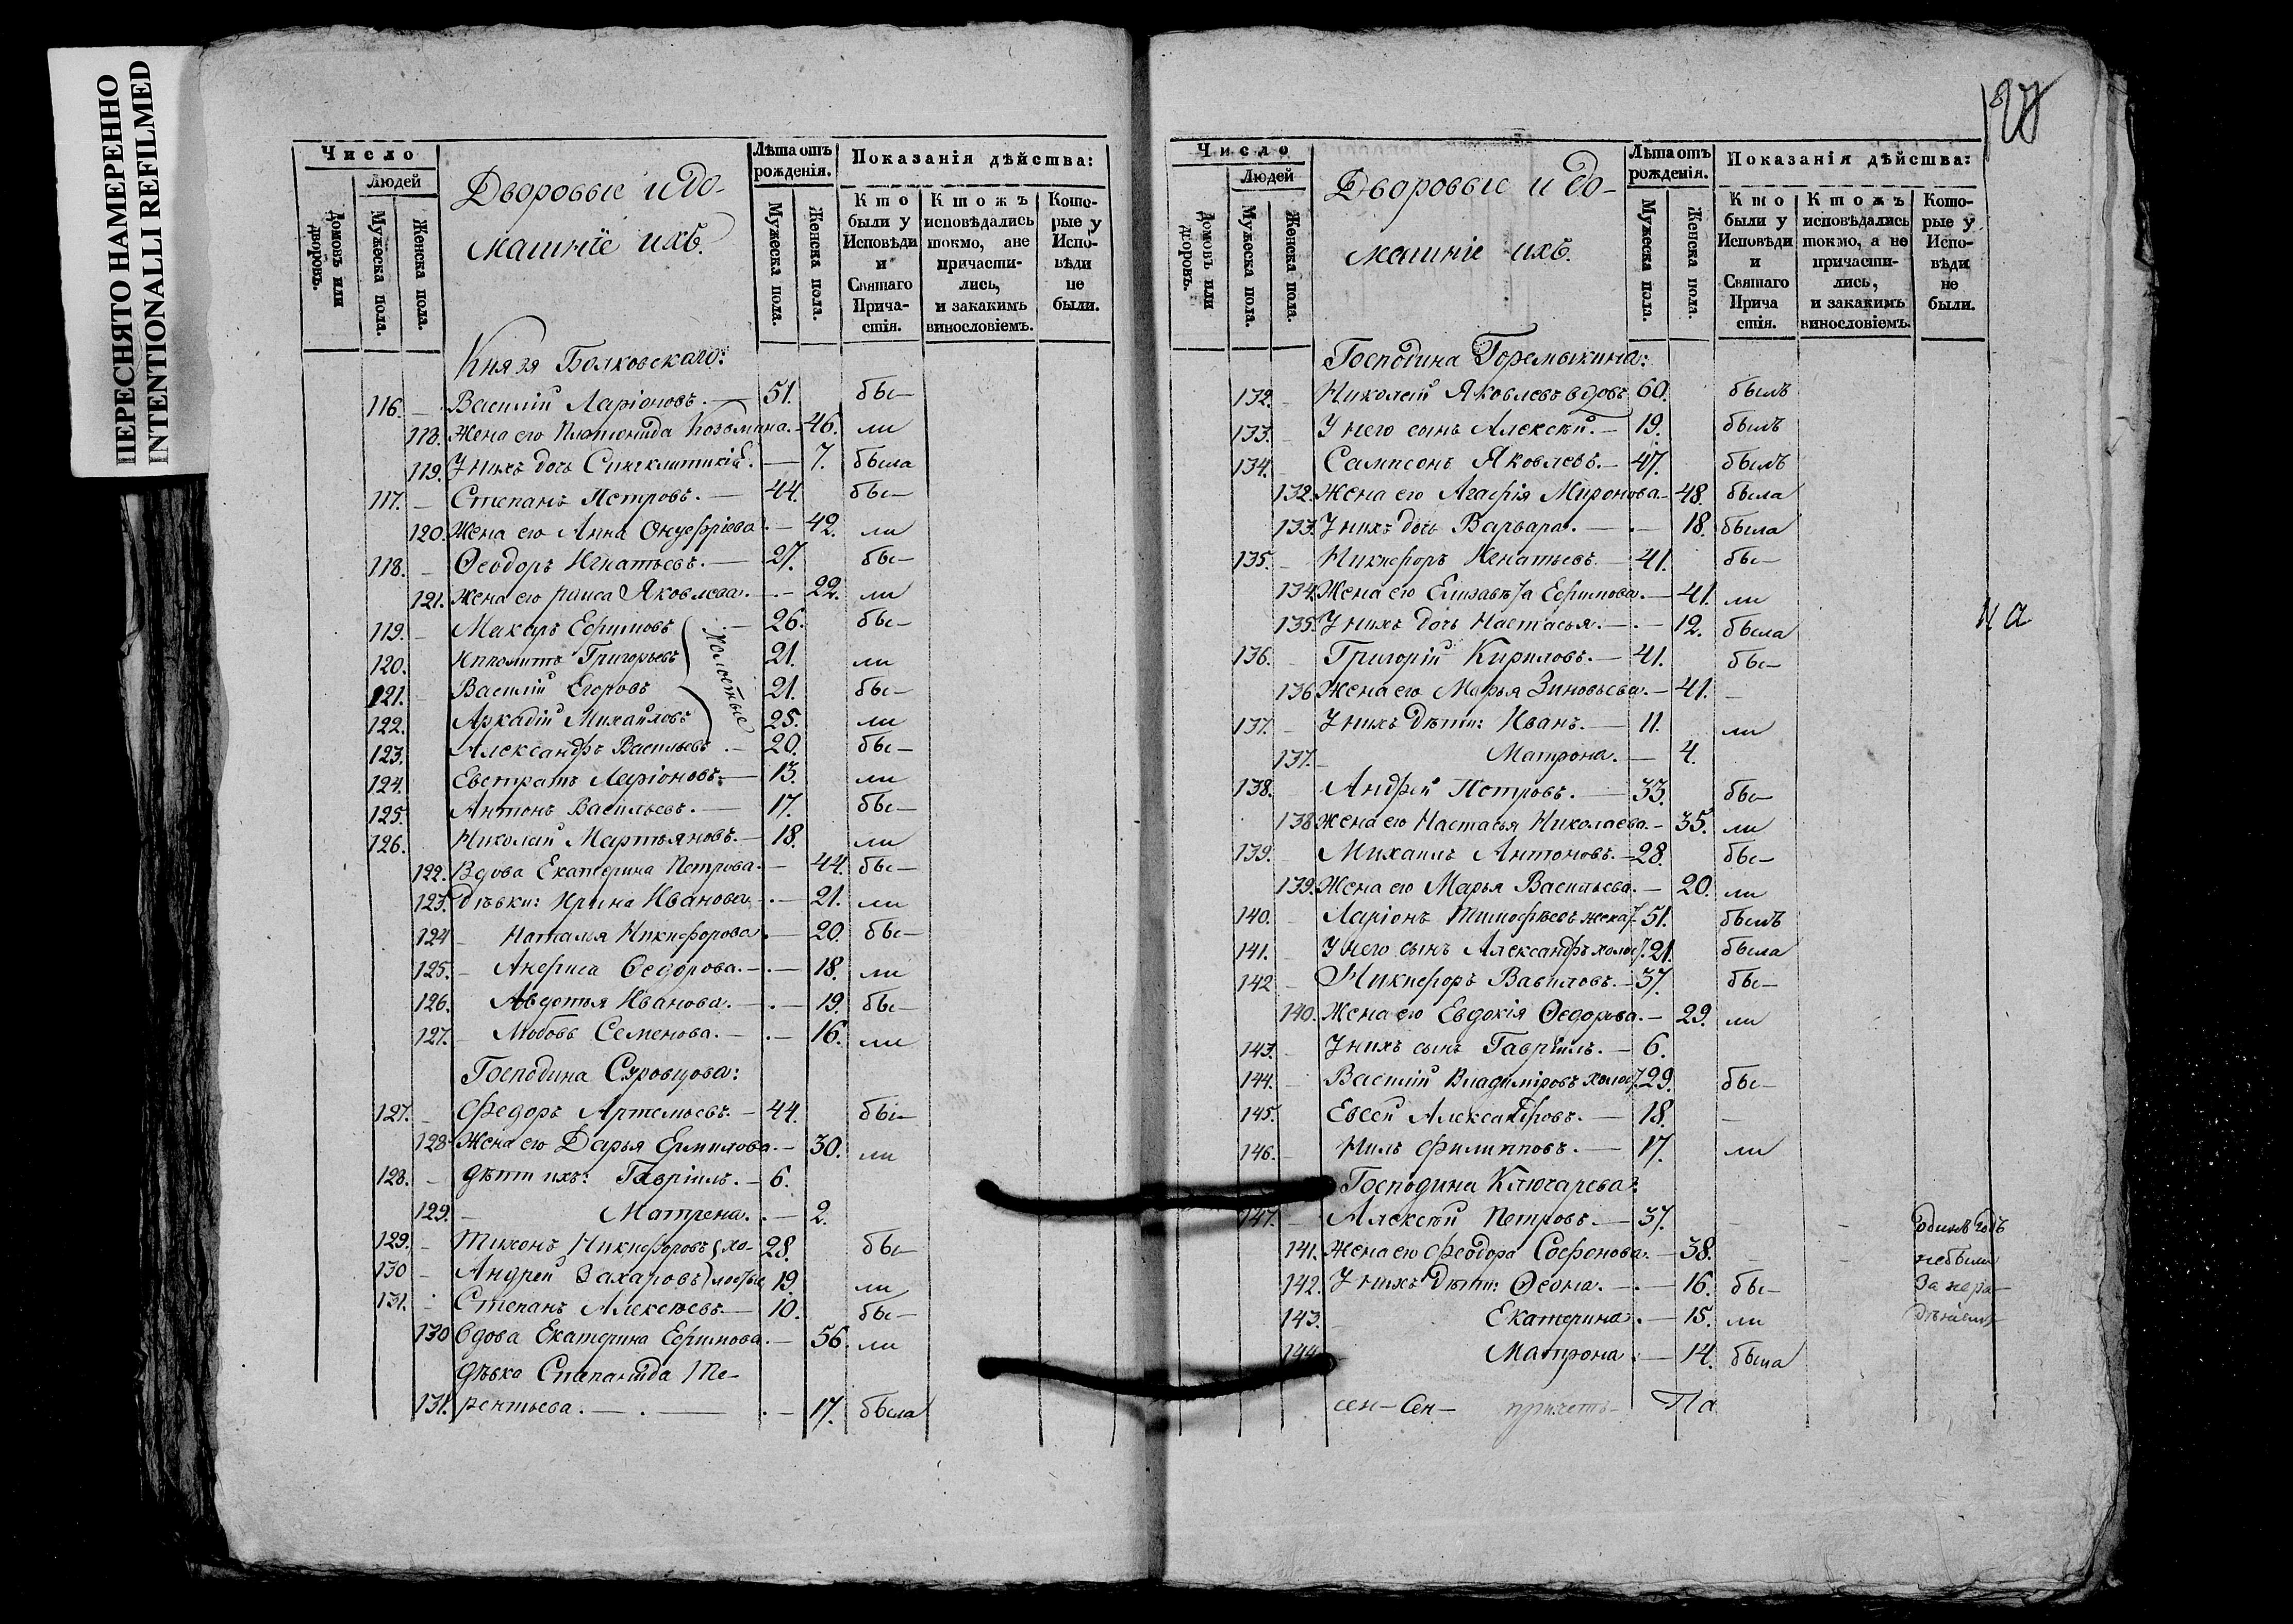 ПЕРЕСНЯТО НАМЕРЕННО
INTENTIONALLI REFILMED
Число
Людей
Домовъ или дворовъ.
Мужеска пола.
Женска пола.
Дворовые и до-
машніе ихъ.
Лѣта отъ рожденія.
Мужеска пола.
Женска пола.
Показанія дѣйства:
Кто были у Исповѣди и Святаго Прича-стія.
Ктожъ исповѣдались токмо, а не причасти-лись, и закакимъ винословіемъ.
Кото-рые у Испо-вѣди не были.
Князя Болховскаго:
116. — Василій Ларіоновъ. — 51. бы—
118. Жена его Платонида Козьмина. — 46. ли
119. У нихъ дочь Синклитикія. — 7. была
117. — Степанъ Петровъ. — 44. бы—
120. Жена его Анна Онуфріева. — 42. ли
118. — Ѳеодоръ Игнатьевъ. — 27. бы—
121. Жена его Раиса Яковлева. — 22. ли
119. — Макаръ Ефимовъ — 26. бы—
холостые
120. Ипполитъ Григорьевъ 21. ли
121. — Василій Егоровъ 21. бы—
122. Аркадій Михайловъ 25. ли
123. Александръ Васильевъ — 20. бы—
124. Евстратъ Ларіоновъ. — 13. ли
125. Антонъ Васильевъ. — 17. бы—
126. Николай Мартьяновъ. — 18. ли
122. Вдова Екатерина Петрова. — 44. бы—
123. Дѣвки: Ирина Иванова. — 21. ли
124 — Наталья Никифорова. — 20. бы—
125. — Анфиса Ѳедорова. — 18. ли
126. Авдотья Иванова. — 19. бы—
127. — Любовь Семенова. — 16. ли
Господина Суровцова:
127. — Федоръ Артемьевъ. — 44. бы—
128 Жена его Дарья Ермилова. — 30. ли
128. — Дѣти ихъ: Гавріилъ. — 6.
129. — Матрена. — 2.
129. — Тихонъ Никифоровъ хо- 28. бы—
130 — Андрей Захаровъ лостые 19. ли
131. — Степанъ Алексѣевъ. — 10. бы—
130 Вдова Екатерина Ефимова. — 56. ли
Дѣвка Степанида Те-
131. рентьева. — 17. была
Число
Людей
Домовъ или дворовъ.
Мужеска пола.
Женска пола.
Дворовые и до-
машніе ихъ.
Лѣта отъ рожденія.
Мужеска пола.
Женска пола.
Показанія дѣйства:
Кто были у Исповѣди и Святаго Прича стія.
Ктожъ исповѣдались токмо, а не причасти-лись, и закакимъ винословіемъ.
Кото-рые у Испо-вѣди не были.
Господина Горемыкина:
132. — Николай Яковлевъ вдовъ 60. былъ
133. — У него сынъ Алексѣй. — 19. былъ
134. Сампсонъ Яковлевъ. — 47. былъ
132. Жена его Агафія Миронова. — 48. была
133. У нихъ дочь Варвара. — 18. была
135. — Никифоръ Игнатьевъ. — 41. бы—
134 Жена его Елизавета Ефимова. — 41. ли
135. У нихъ дочь Настасья. — 12. была
136. — Григорій Кириловъ. — 41. бы—
136 Жена его Марья Зиновьева. — 41. —
137. — У нихъ дѣти: Иванъ. — 11. ли
137. — Матрона. — 4.
138. Андрей Петровъ. — 33. бы—
138 Жена его Настасья Николаева. — 35. ли
139. — Михаилъ Антоновъ. — 28. бы—
139. Жена его Марья Васильева. — 20. ли
140. — Ларіонъ Тимофѣевъ 51. былъ
141. У него сынъ Александръ холос. 21. была
142 — Никифоръ Вавиловъ. — 37. бы—
140. Жена его Евдокія Ѳедорова. — 29. ли
143. — У нихъ сынъ Гавріилъ. — 6.
144. — Василій Владиміровъ холос. 29. бы—
145. Евсей Александровъ. — 18. —
146. — Нилъ Филипповъ. — 17. ли
Господина Ключарева:
147. — Алексѣй Петровъ. — 37. — — одинъ годъ
141. Жена его Феодора Софонова. — 38. — — небыли
142. У нихъ дѣти: Ѳеона. — 16. бы— за нера—
143. — Екатерина. — 15. ли дѣніемъ
144. Матрона. — 14. была
сен— Сен— причетъ— Па